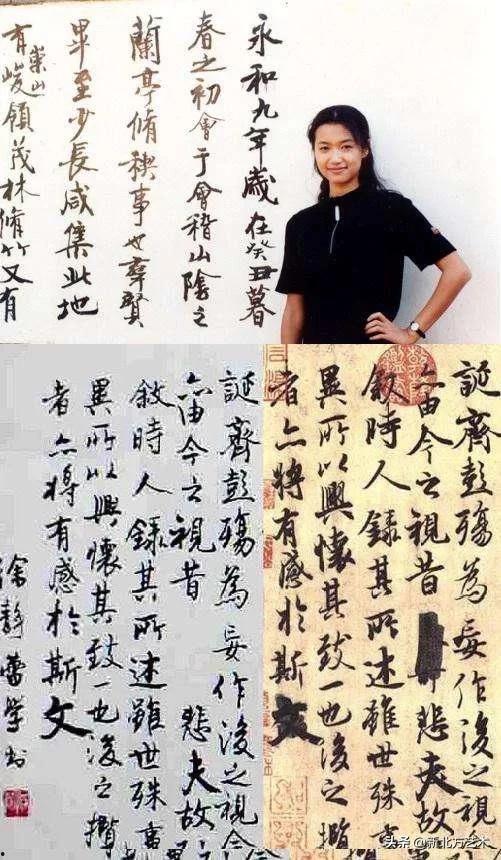 永和九年歲在癸丑暮
春之初會于會稽山陰之
蘭亭脩稧事也羣賢
畢至少長咸集此地
有崇山峻領茂林脩竹又有
誕齊彭殤為妄作後之視今
亦由今之視昔悲夫故
敘時人錄其所述雖世殊事
異所以興懷其致一也後之攬
者亦將有感於斯文
徐静蕾學书
誕齊彭殤為妄作後之視
亦由今之視昔悲夫故
敘時人錄其所述雖世殊
異所以興懷其致一也後之攬
者亦將有感於斯文
头条 @新北方艺术